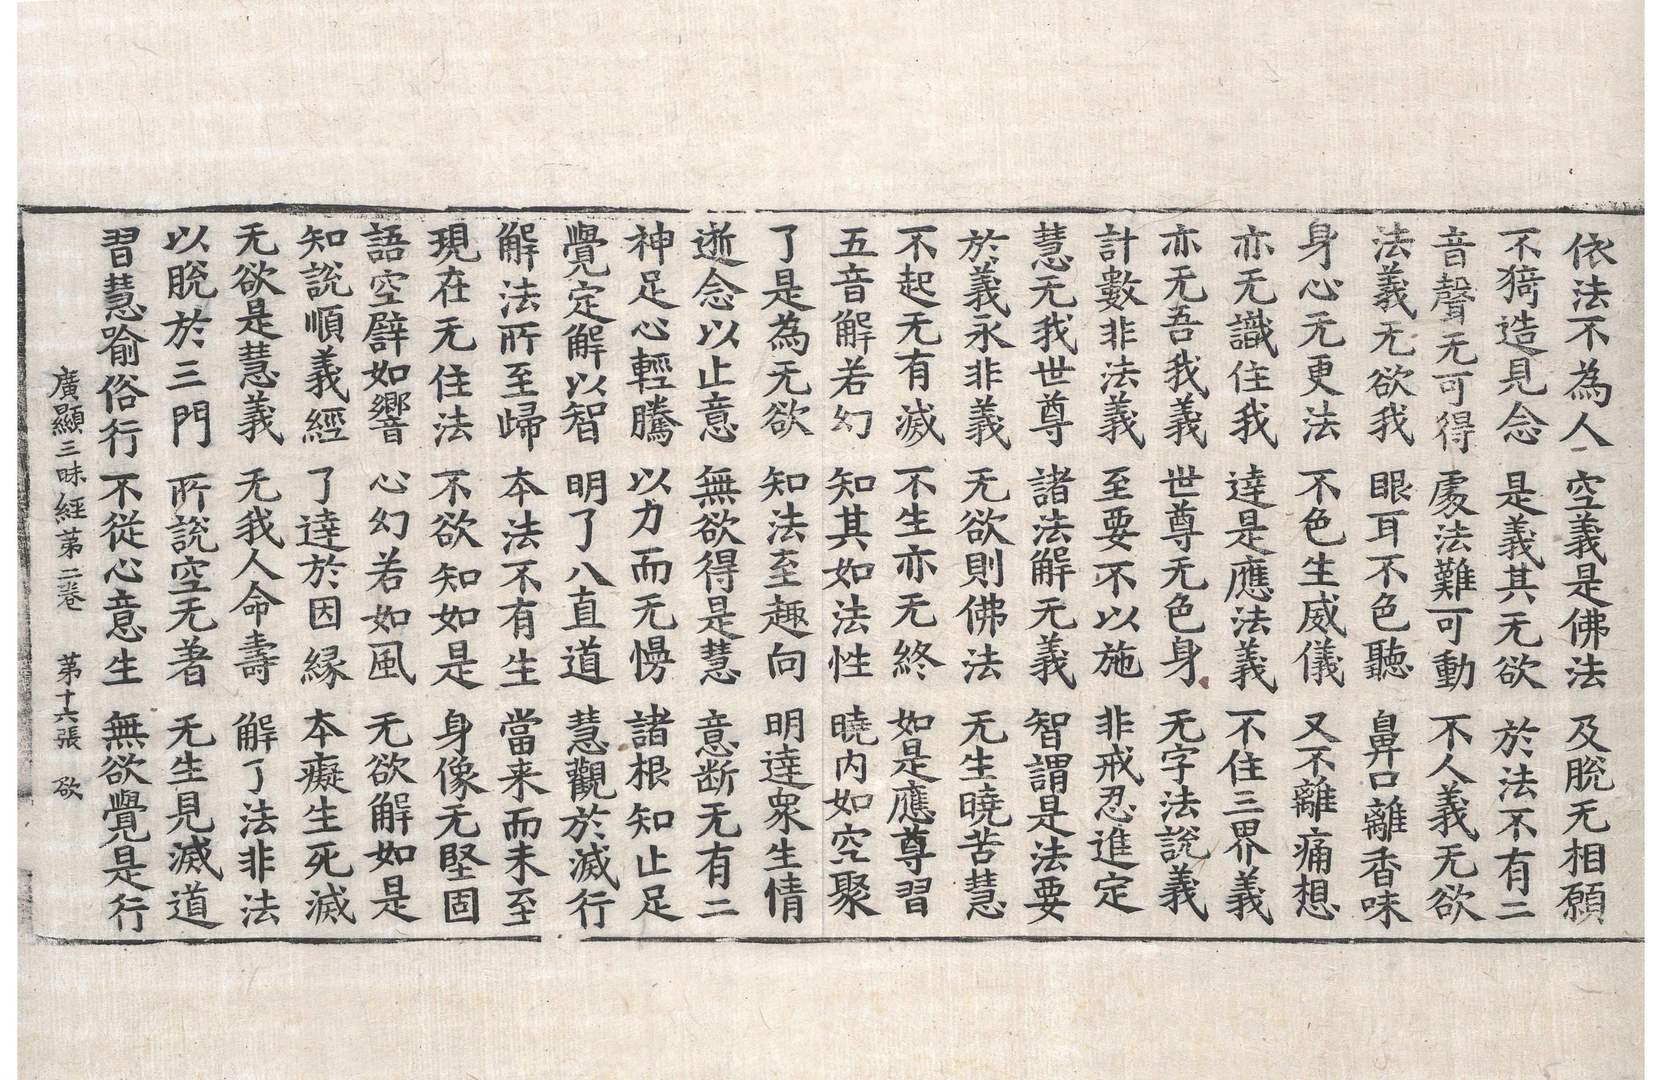 依法不為人 空義是佛法 及脫无相願
不猗造見念 是義其无欲 於法不有二
音聲无可得 處法難可動 不人義无欲
法義无欲我 眼耳不色聽 鼻口離香味
身心无更法 不色生威儀 又不離痛想
亦无識住我 達是應法義 不住三界義
亦无吾我義 世尊无色身 无字法說義
計數非法義 至要不以施 非戒忍進定
慧无我世尊 諸法解无義 智謂是法要
於義永非義 无欲則佛法 无生曉苦慧
不起无有滅 不生亦无終 如是應尊習
五音解若幻 知其如法性 曉内如空聚
了是為无欲 知法至趣向 明達衆生情
逝念以止意 無欲得是慧 意断无有二
神足心輕騰 以力而无慢 諸根知止足
覺定解以智 明了八直道 慧觀於滅行
解法所至歸 本法不有生 當来而未至
現在无住法 不欲知如是 身像无堅固
語空譬如響 心幻若如風 无欲解如是
知說順義經 了達於因緣 本癡生死滅
无欲是慧義 无我人命壽 解了法非法
以脫於三門 所說空无著 无生見滅道
習慧喻俗行 不從心意生 無欲覺是行
廣顯三昧經第二卷 第十六張 欲